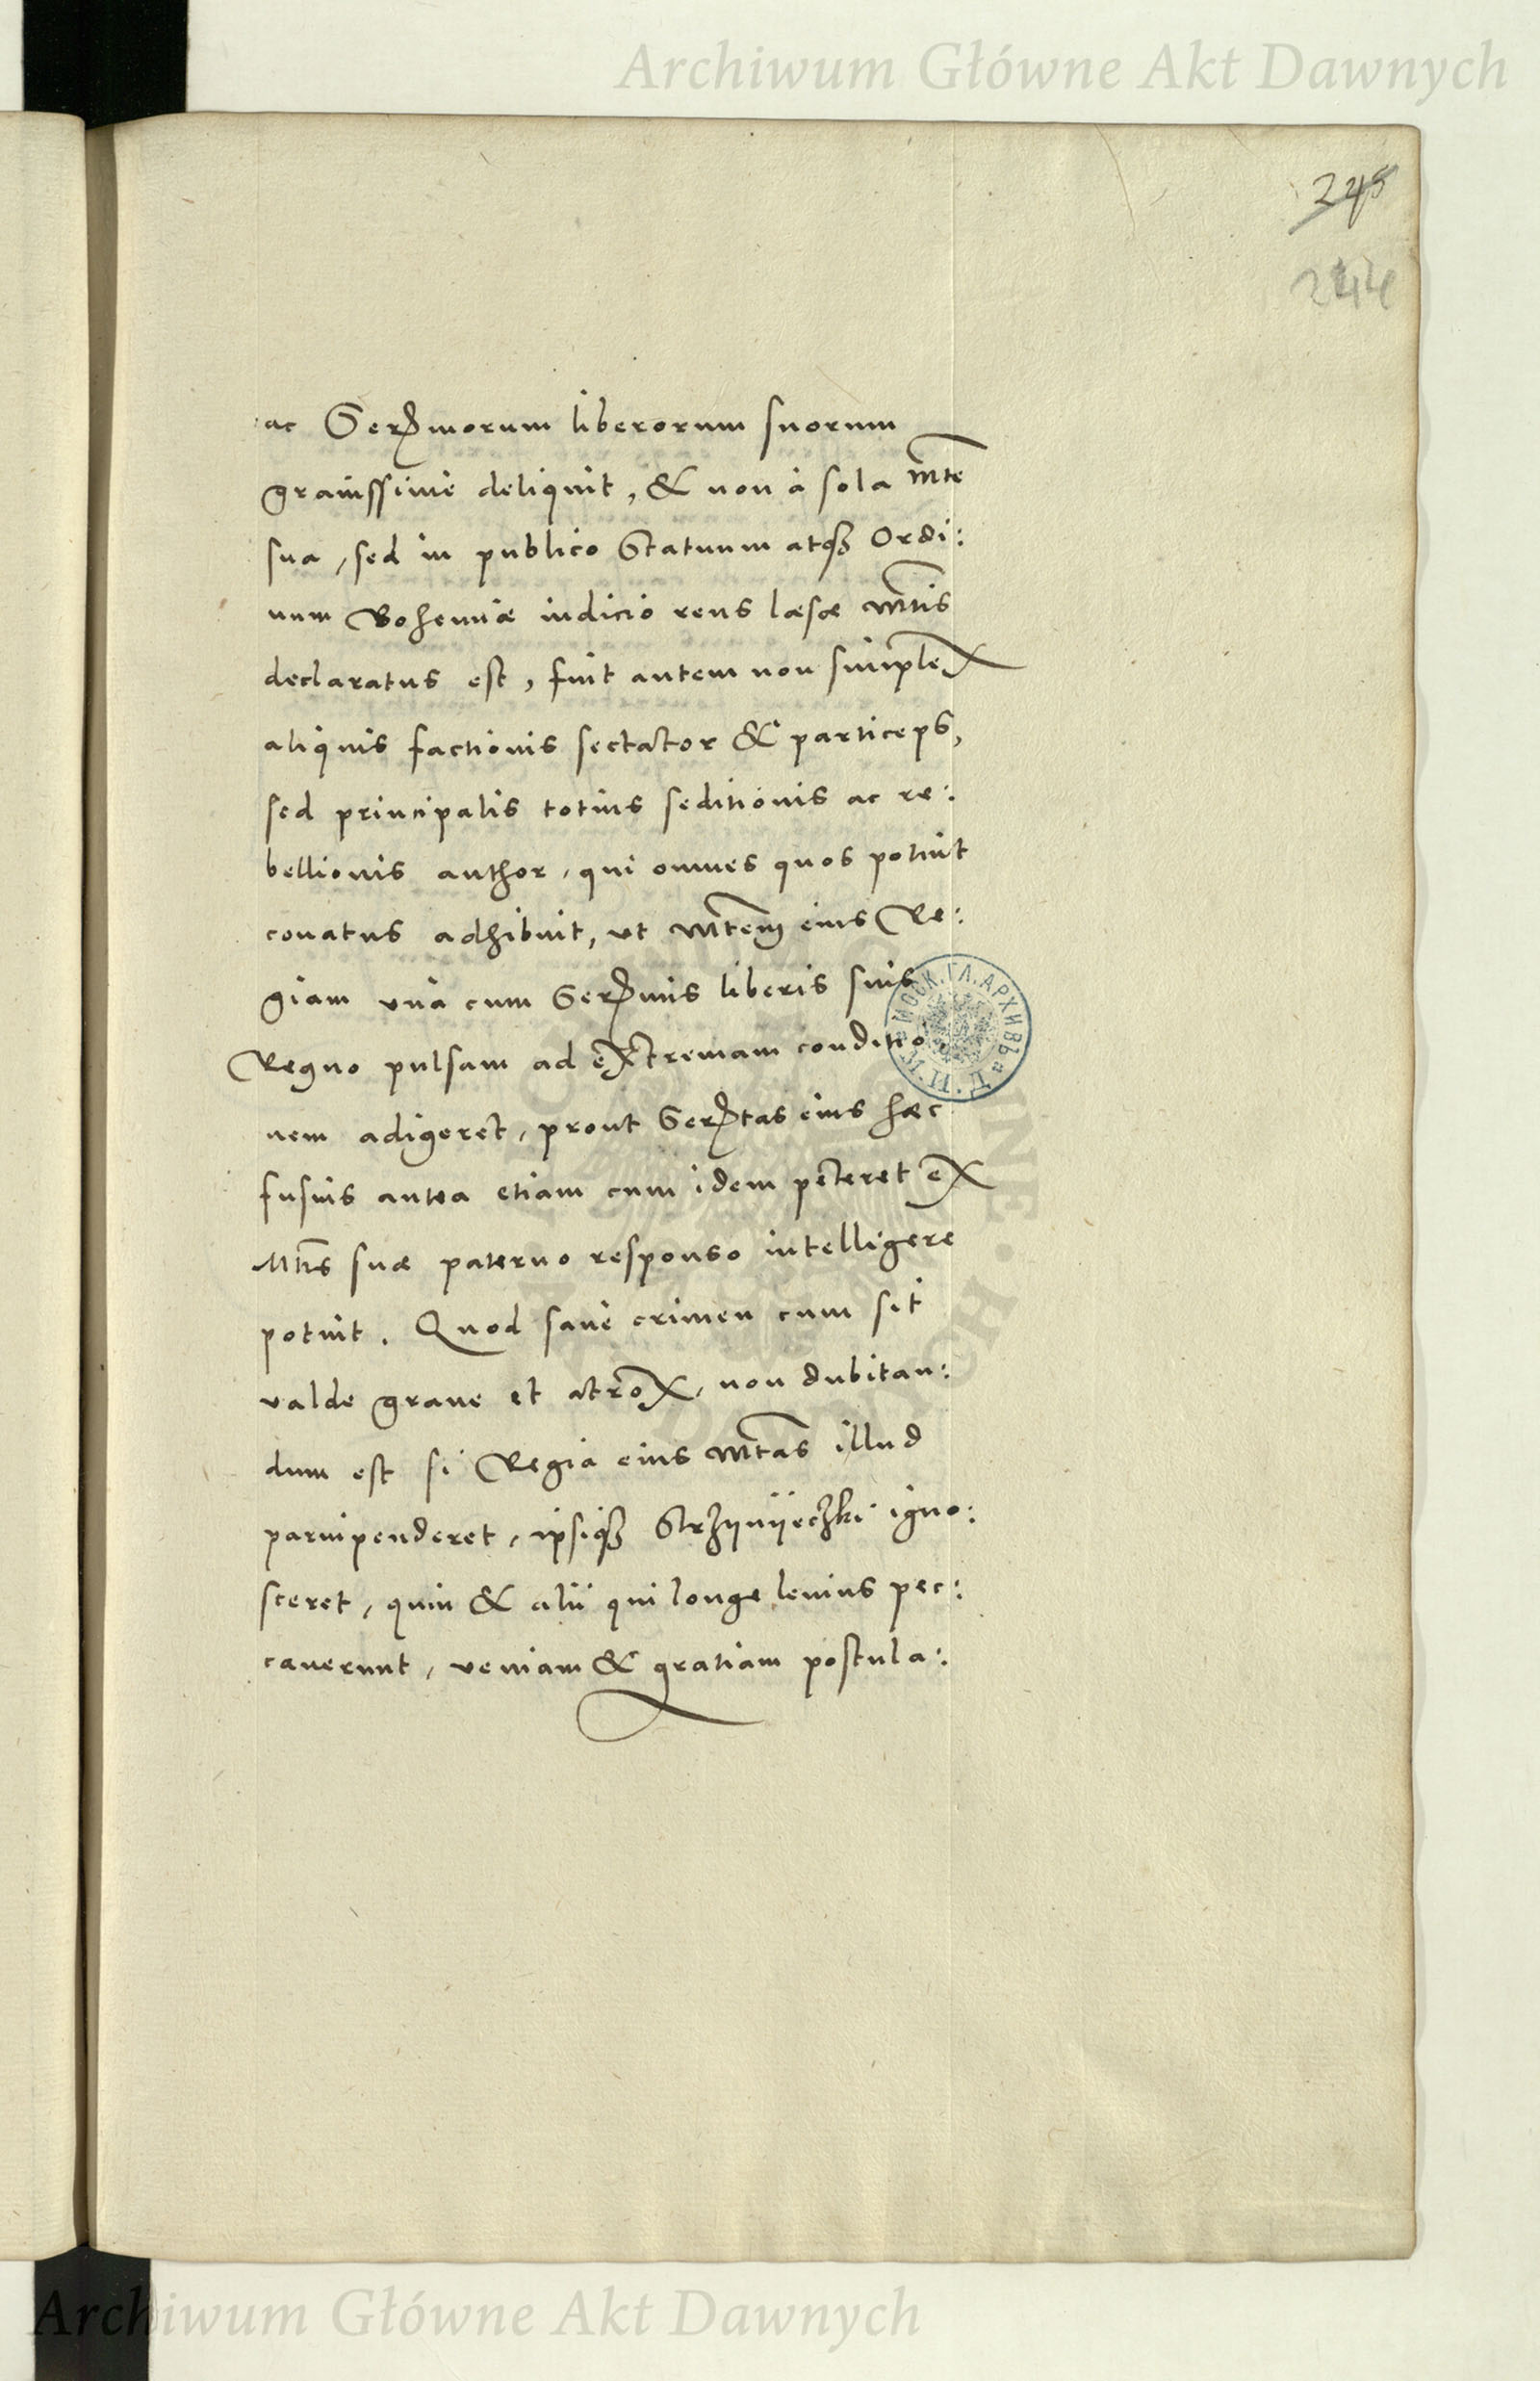 Archiwum Główne Akt Dawnych
245
244
ac Serꝫmorum liberorum suorum
grauissime deliquit, & non à sola Mte
sua, sed in publico Statuum atqꝫ Ordi:
num Bohemiæ iudicio reus læsæ Mtis
declaratus est, fuit autem non simplex
aliquis factionis sectator & particeps,
sed principalis totius seditionis ac re:
bellionis author, qui omnes quos potuit
conatus adhibuit, ut Mtem eius Re:
giam una cum Serꝫmis liberis suis
Regno pulsam ad extremam conditio
nem adigeret, prout Serꝫtas eius hæc
fusius antea etiam cum idem peteret ex
Mtis suæ paterno responso intelligere
potuit. Quod sane crimen cum sit
valde graue et atrox, non dubitan:
dum est si Regia eius Mtas illud
paruipenderet, ipsiqꝫ Strzÿnÿeczki igno:
sceret, quin & alii qui longe leuius pec:
cauerunt, veniam & gratiam postula:
МОСК. ГЛ. АРХИВЪ
Archiwum Główne Akt Dawnych